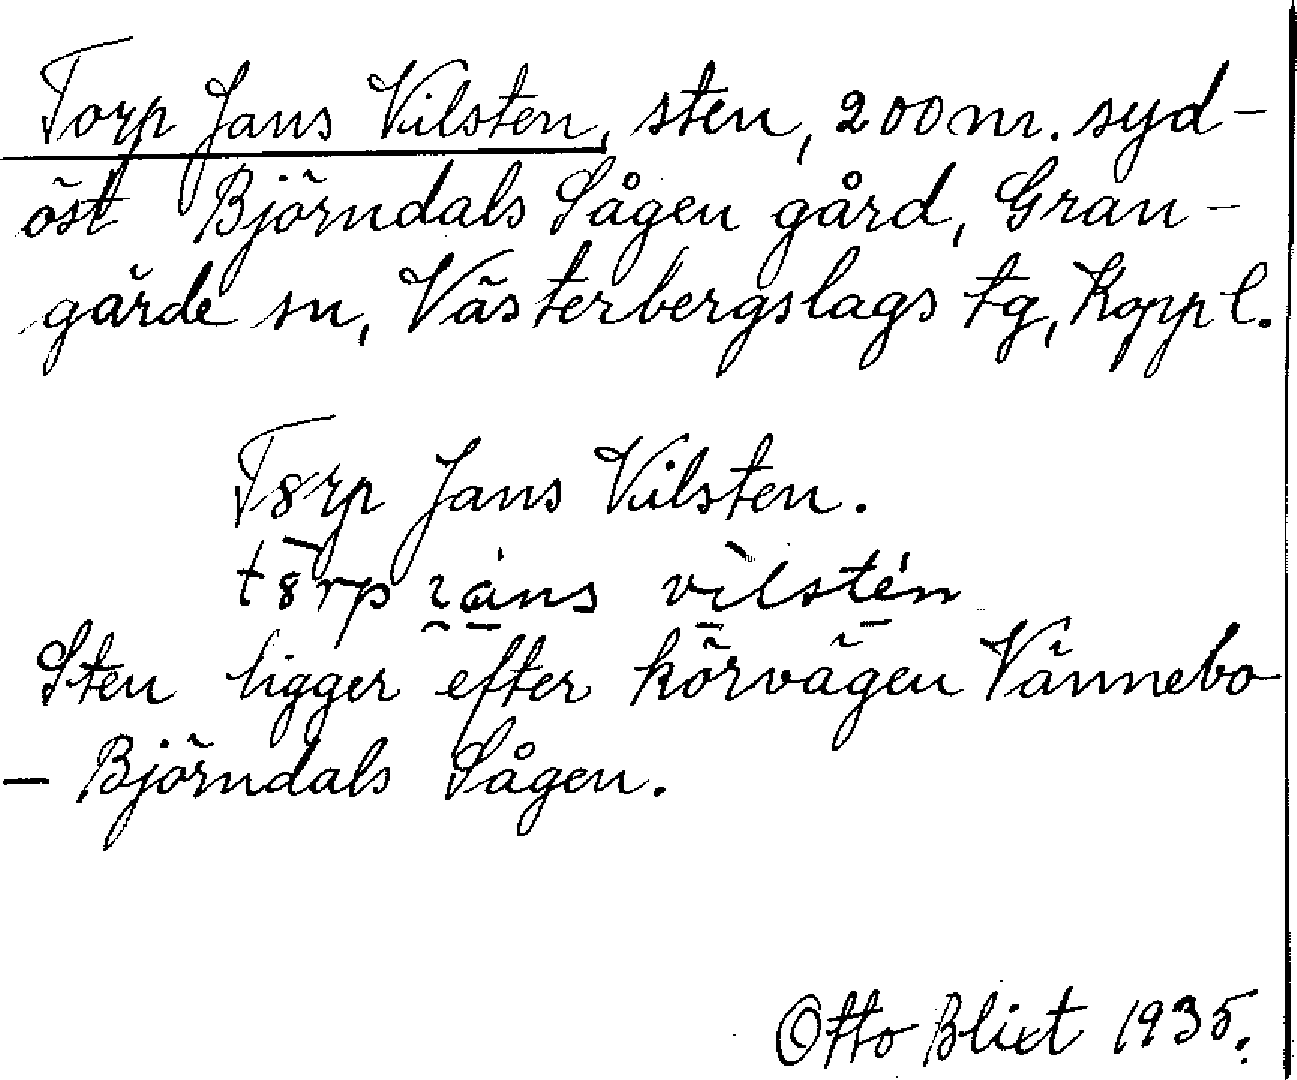 Torp Jans Vilsten, sten, 200 m. syd-
öst Björndals Sågen gård, Gran-
gärde sn, Västerbergslags tg, Kopp l.
T8rp Jans Vilsten.
t8rp ɿáns vìlstén
Sten ligger efter körvägen Vännebo
- Björndals Sågen.
Otto Blixt 1935.